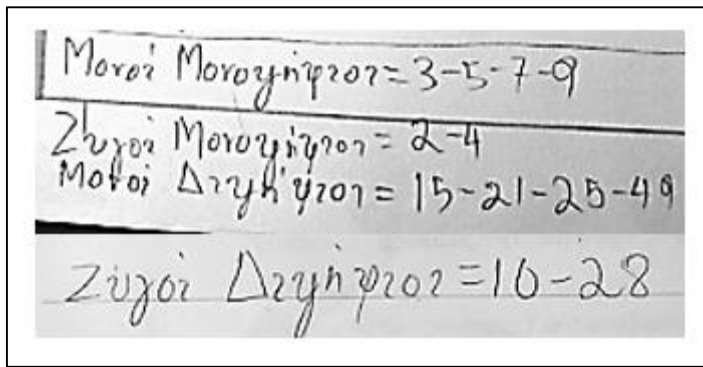 Μονοί Μονοψήφιοι=3-5-7-9
Ζυγοί Μονοψήφιοι=2-4
Μονοί Διψήφιοι=15-21-25-49
Ζυγοί Διψήφιοι=10-28